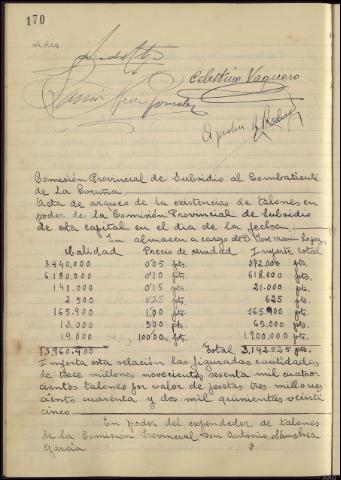 170
Celestino Vaquero
Comisión Provincial de Subsidio al Combatiente
de La Coruña
Acta de arqueo de la existencias de talones en
poder de la Comisión Provincial de Subsidio
de esta capital en el día de la fecha.
En almacen a cargo de D. José Marin Lopez,
Calidad Precio de unidad Importe total
7.440.000 0'05 pts. 372.000 pts.
6.180.000 0'10 pts. 618.000 pts.
141.000 0'15 pts. 21.000 pts.
2.500 0'25 pts. 625 pts.
165.900 1,00 pts. 165.900 pts.
13.000 5,00 pts. 65.000 pts.
19.000 100'00 pts. 1.900.000 pts.
13.960.400 Total 3,142.525 pts.
Importa esta relación las figuradas cantidades
de trece millones novecientos sesenta mil cuatro
cientos talones por valor de pesetas tres millones
ciento cuarenta y dos mil quinientas veinti
cinco
En poder del expendedor de talones
de la Comisión Provincial Don Antonio Sánchez
García